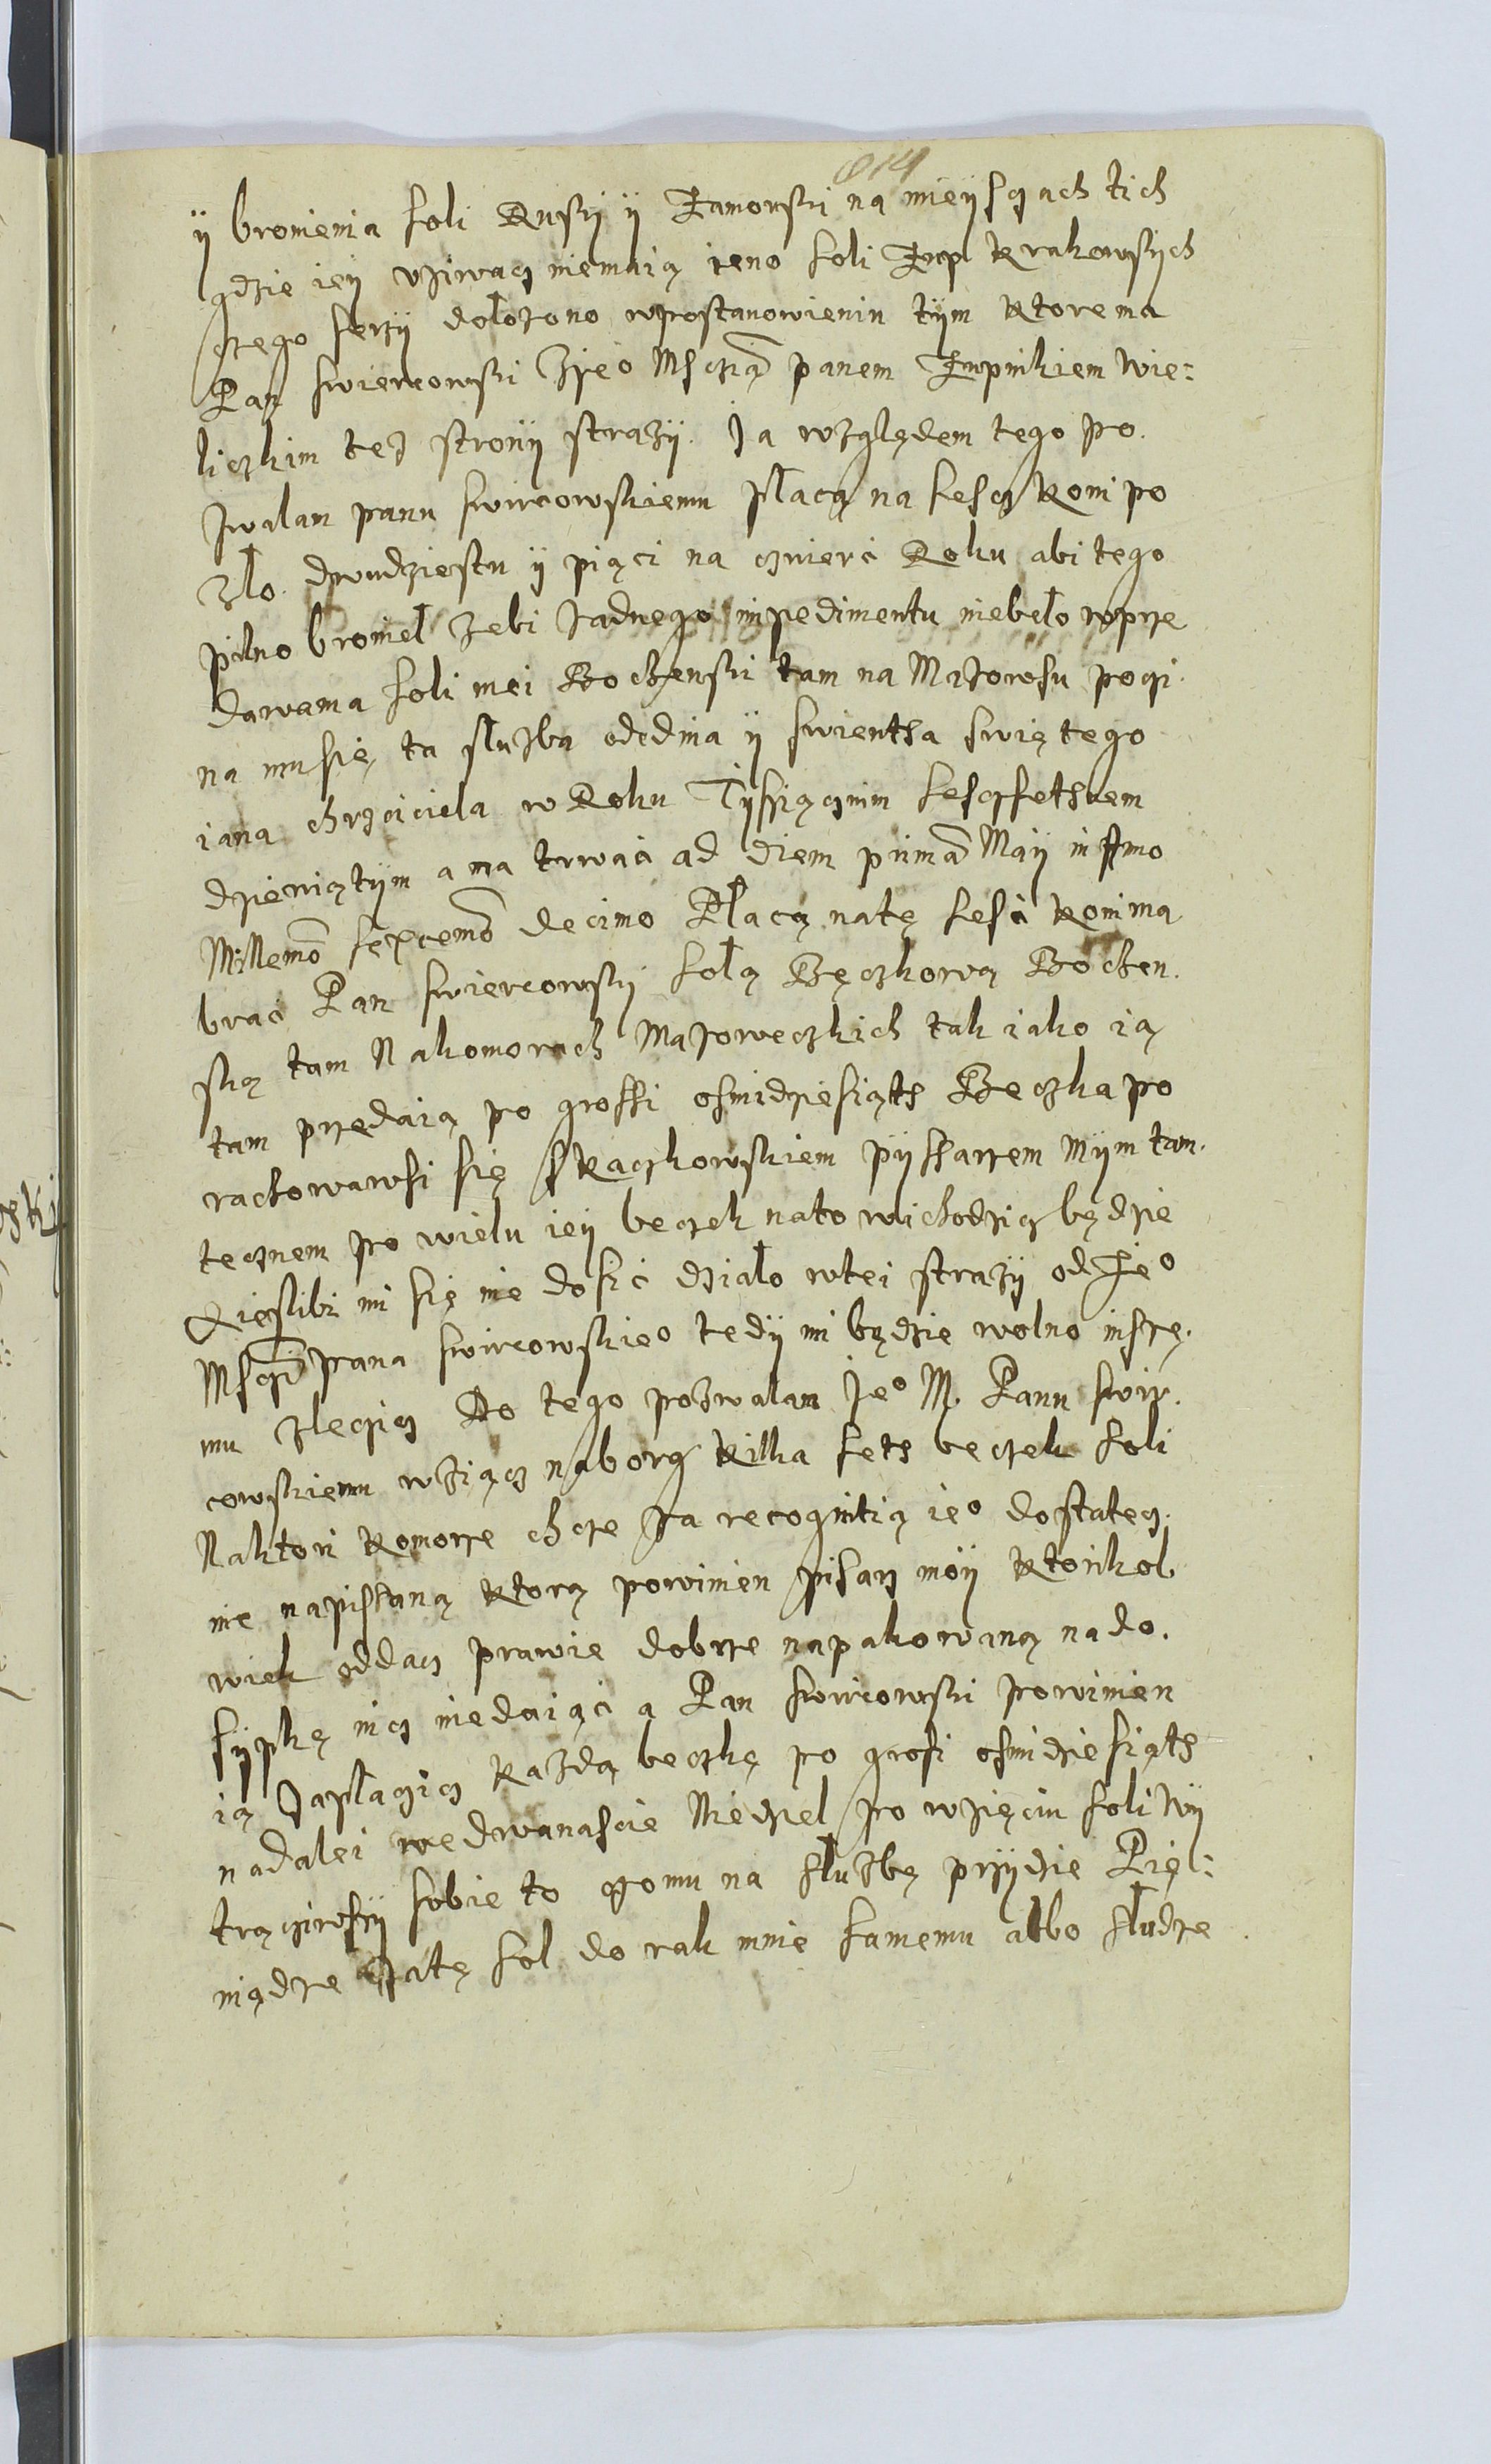 014
ÿ bronienia soli Ruskÿ ÿ Zamorski na mieÿscach tich
gdzie ieÿ vziwacz niemaią ieno soli Zup Krakowskÿch
czego serzÿ dołozono wpostanowieniu tÿm ktore ma
Pan Swiercowski Zye° Msczią panem Zupnikiem Wie:
liczkim tej stronÿ strazÿ. Ja względem tego po.
zwalam panu Swircowskiemu płacą na sescz koni po
zło. dwudziestu ÿ piąci na czwierc Roku abi tego
pilno bronieł zebi zadnego impedimentu niebeło wprze
dawania soli mei Bochenski tam na Mazowsu poczi.
na mu się ta słuzba ode dnia ÿ swientha swiętego
iana chrzciciela w Roku Tÿssiącznim sesczsethnem
dziewiątÿm a ma trwac ad diem prima Maÿ in Anno
Millemo sexcemo decimo Płacą natę sesc koni ma
brac Pan Swiercowski solą Bęczkową Bochen.
ską tam Nakomorach Mazoweczkich tak iako ią
tam przedaią po grossi osmidziesiąth Beczka po
rachowawsi się s Raczkowskiem pÿssarzem mÿm tam.
tecznem po wielu ieÿ beczek nato wichodzicz będzie
Ziesliby mi się nie dosic działo wtei strazÿ od Je°
Msczi pana Swircowskie° tedÿ mi będzie wolno inszę.
mu zlecicz Do tego pozwalam Je° M. Panu Swir.
cowskiemu wziącz naborg kilka seth beczek soli
Naktori komorze chcze za recognitią ie° dostatecz.
nie napissaną ktorą powinien pisarz moÿ ktorikol.
wiek oddacz prawie dobrze napakowaną na do.
sÿpkę nicz niedaiąci a Pan Swircowski powinien
ią zapłacicz kazdą beczkę po grosi osmidziesiąth
nadalei wedwanascie Niedziel po wzięciu soli Wÿ
trącziwssÿ sobie to czomu na słuzbę przÿdzie Pię:
niądze zatę sol do rak mnie samemu albo słudze